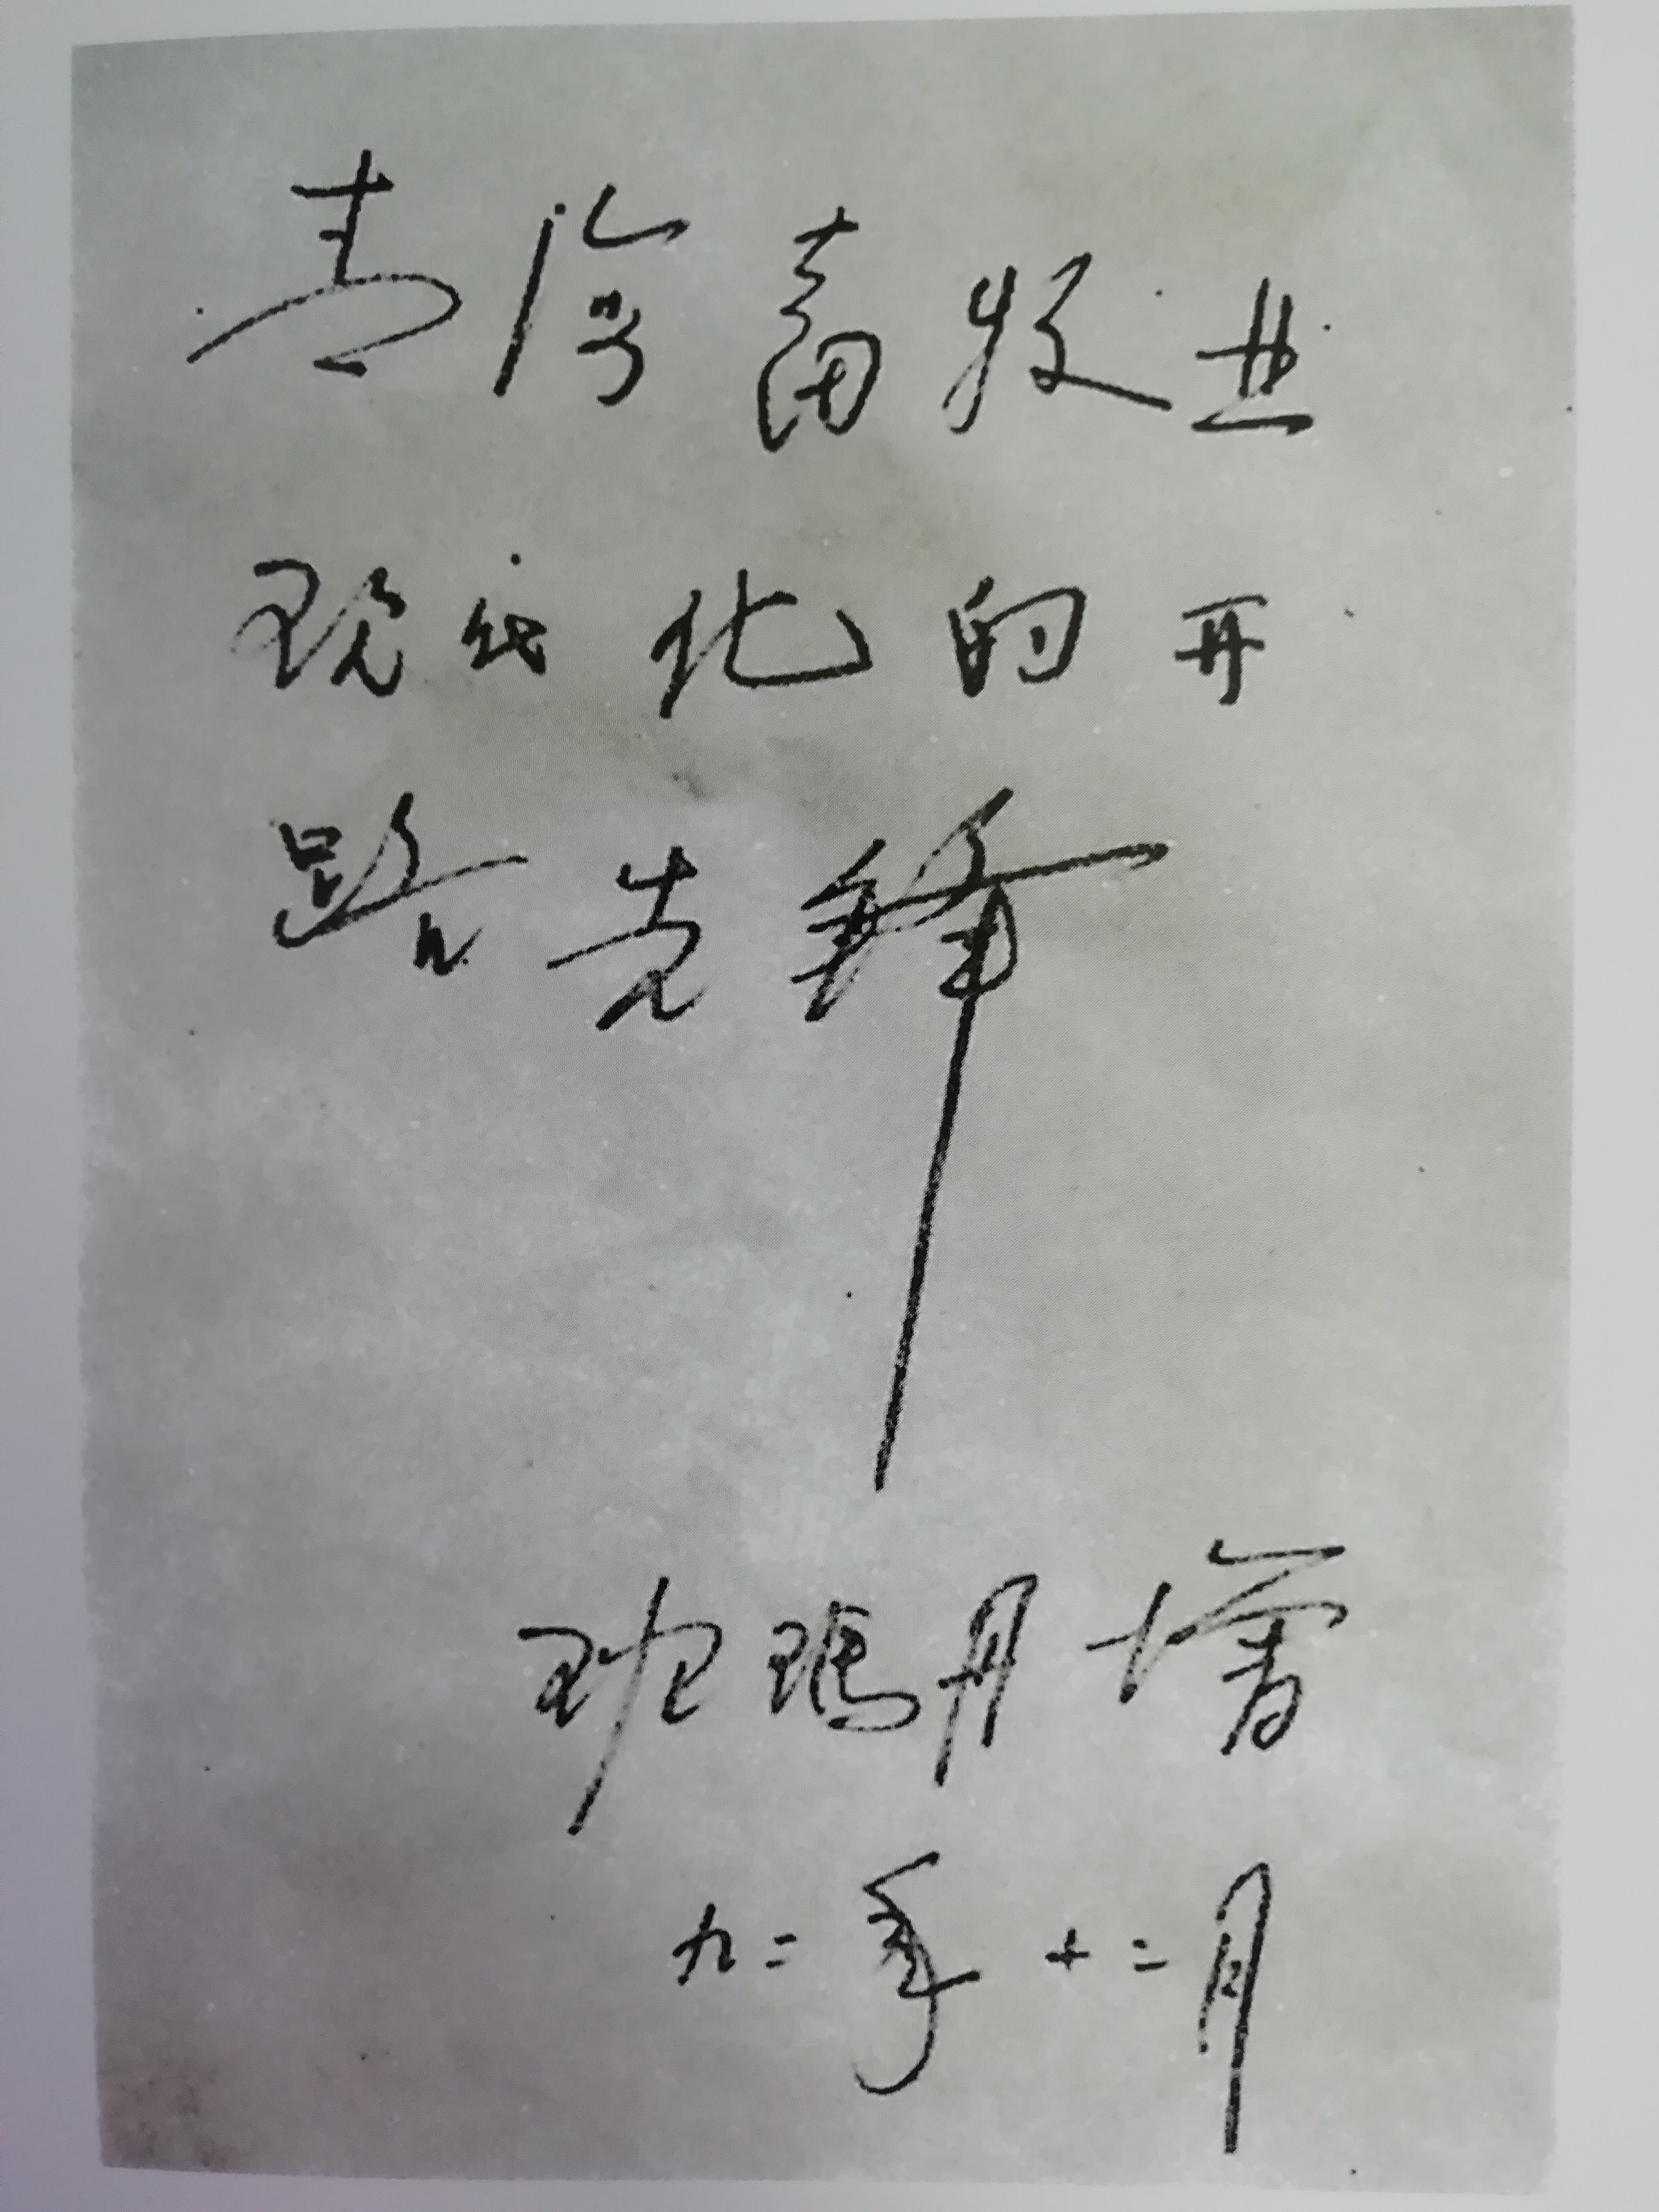 青海畜牧业
现代化的开
路先锋
班玛丹增
九二年十二月